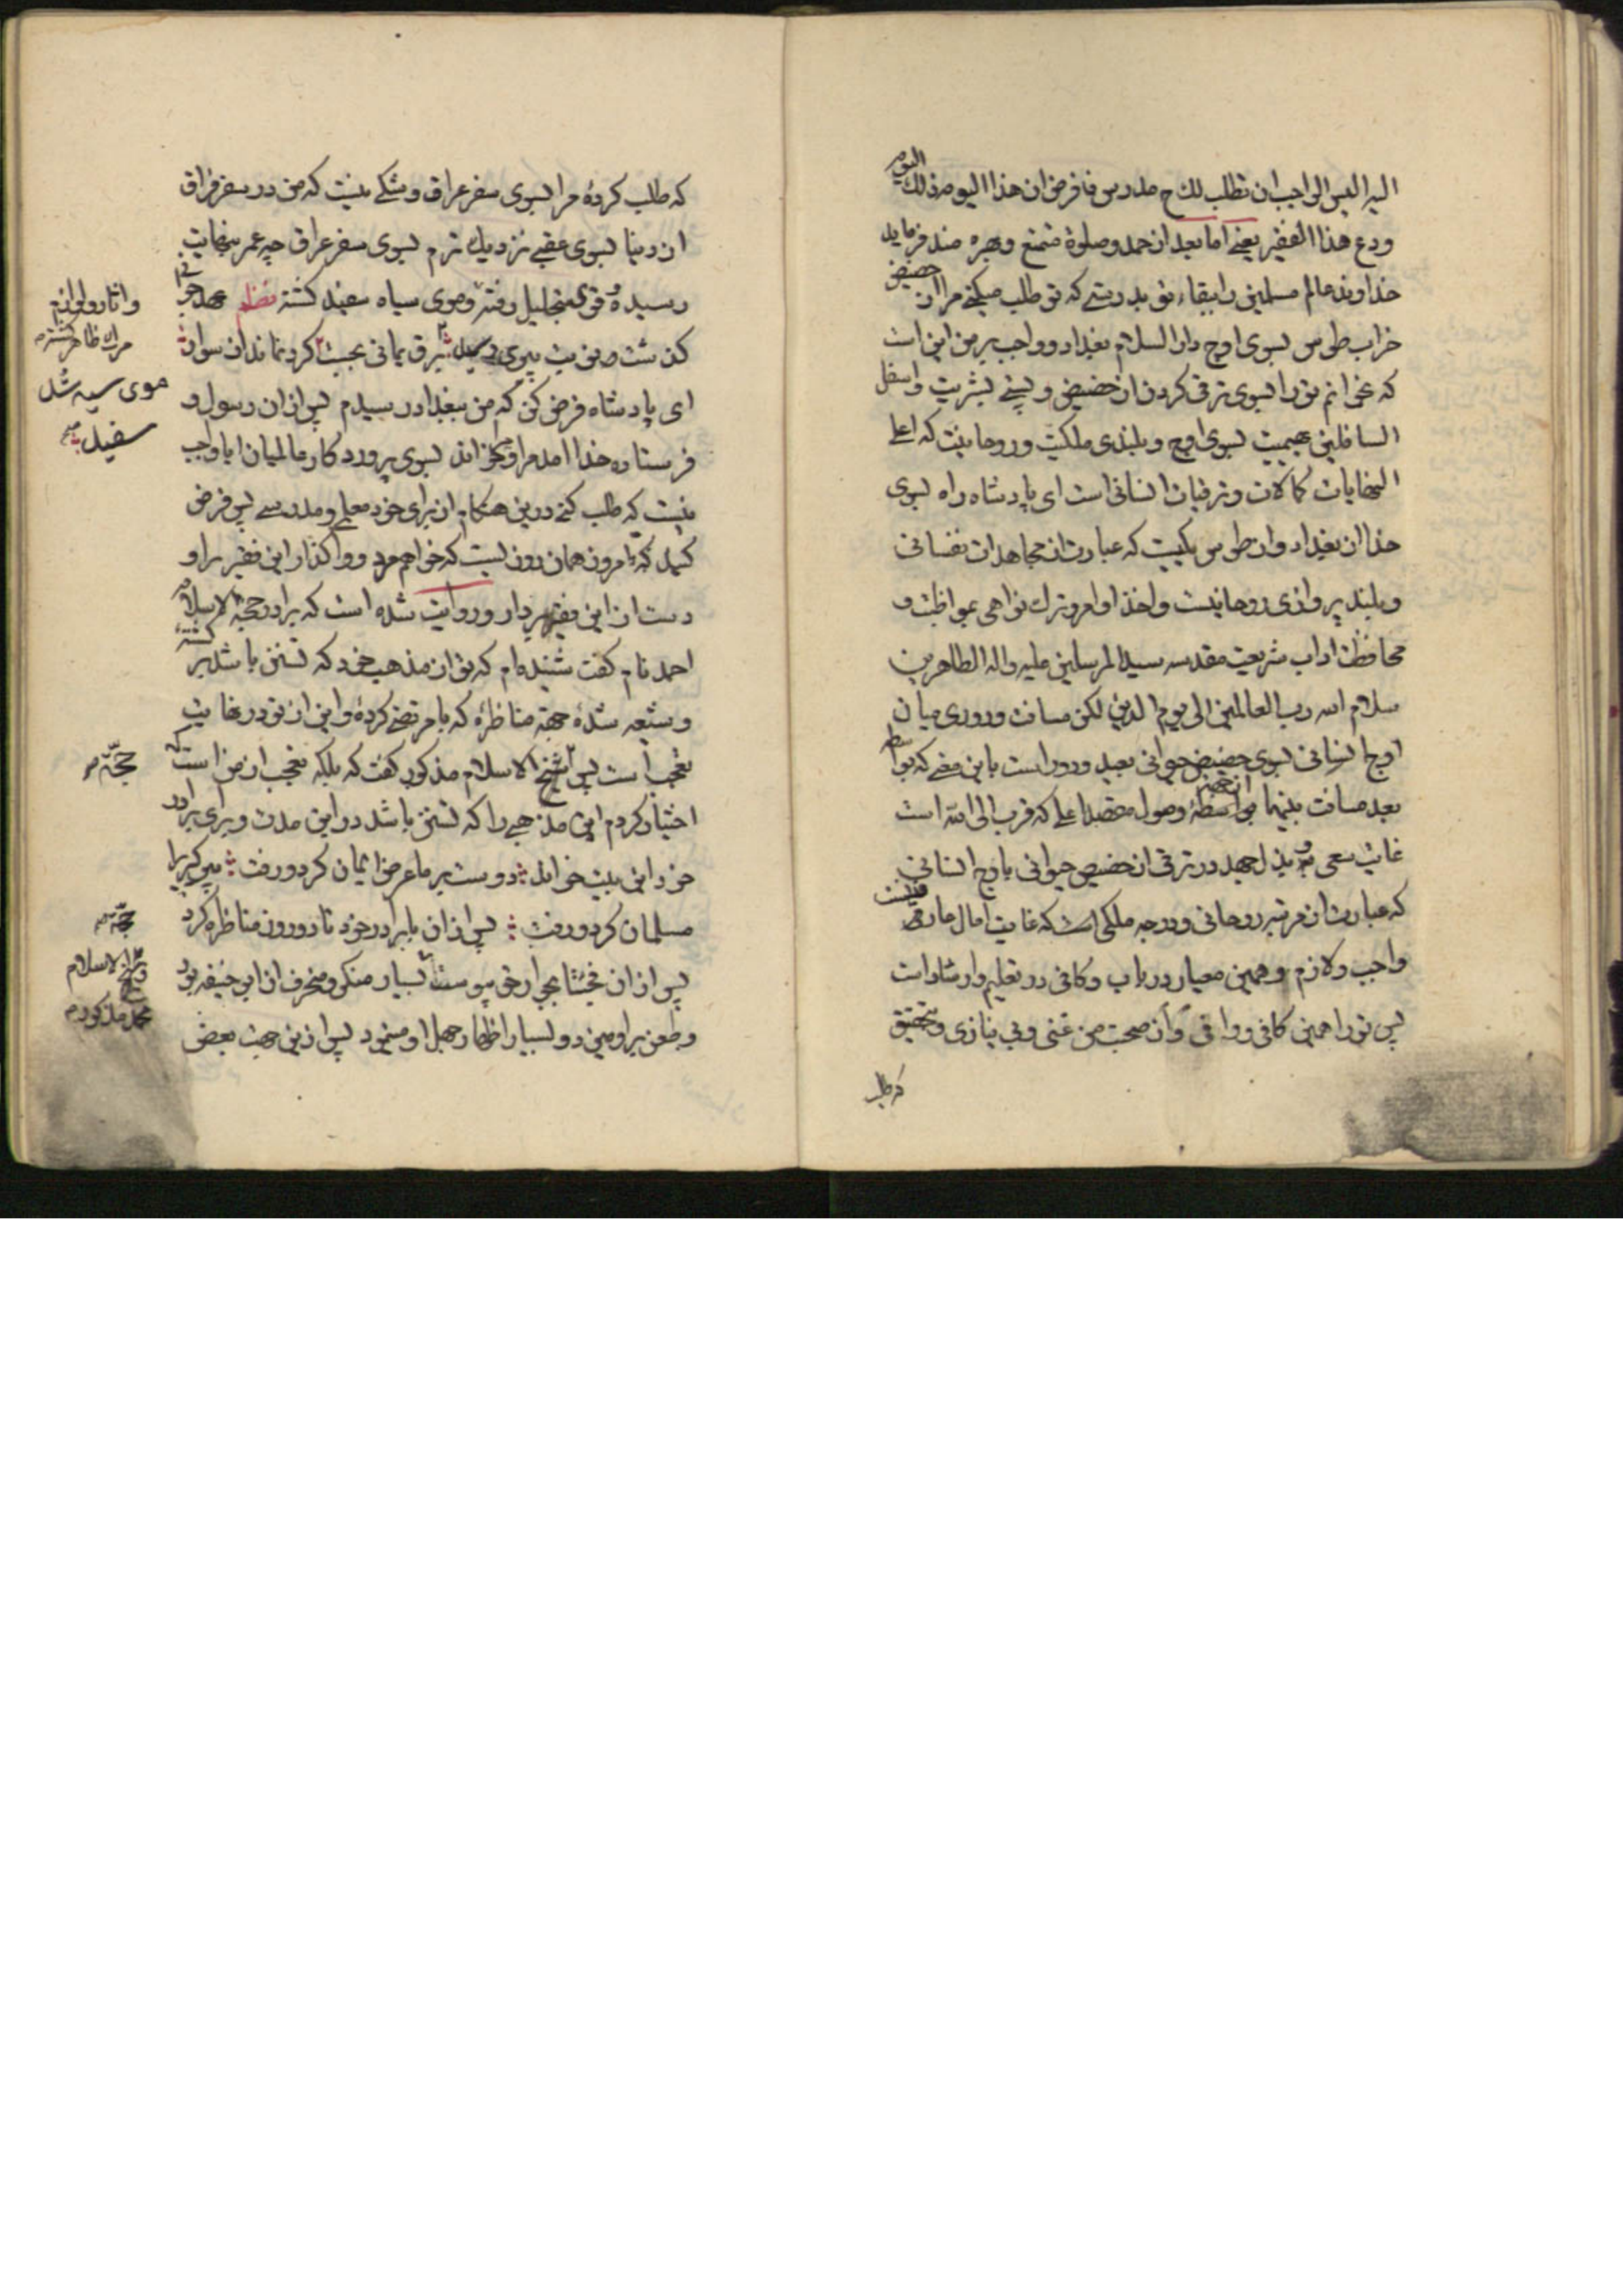 الیه الیس الواجب ان تطلب لك ح مدرس فافرض ان هذا الیوم ذلك الیوم
ودع هذا الفقیر یعنی اما بعد از حمد و صلوة متمتع و بهره مند فرماید
خداوند عالم مسلمین را ببقاء تو بدرستی که تو طلب میکنی مرا از حضیض
خراب طوس بسوی اوج دار السلام بغداد و واجب بر من این است
که بخوانم تو را بسوی ترقی کردن از حضیض و پستی بشریت و اسفل
السافلین بهیمیت بسوی اوج و بلندی ملکیت و روحانیت که اعلی
النهایات کمالات و ترقیات انسانی است ای پادشاه راه بسوی
خدا از بغداد و از طوس یکیست که عبارت از مجاهدات نفسانی
و بلند پروازی روحانیست و اخذ اوامر و ترك نواهی بمواظبت و
محافظت اداب شریعت مقدسه سید المرسلین علیه و اله الطاهرین
سلام الله رب العالمین الی یوم الدین لکن مسافت و دوری میان
اوج انسانی بسوی حضیض حیوانی بعید و دور است باین معنی که بواسطه
بعد مسافت بینهما بواسطۀ وصول مقصد اعلی که قرب الی الله است
غایت سعی و بذل جهد در ترقی از حضیض حیوانی باوج انسانی
که عبارت از مرتبه روحانی و درجه ملکی است که غایت امال عارفین است
واجب و لازم و همین معیار در باب و کافی در تعلیم و ارشاد است
پس تو را همین کافی و وافی و از صحبت من غنی و بی نیازی و بتحقیق
که طلب
که طلب کردۀ مرا بسوی سفر عراق و شکی نیست که من در سفر فراق
از دنیا بسوی عقبی نزدیك ترم بسوی سفر عراق چه عمر بنهایت
رسیده و قوی بتحلیل رفته و موی سیاه سفید کشته نظم عهد جوانی
ای پادشاه فرض کن که من ببغداد رسیدم پس از ان رسول و
فرستاده خدا امد مرا و بخواند بسوی پروردکار عالمیان ایا واجب
نیست که طلب کنی درین هنکام از برای خود معلم و مدرسی پس فرض
کنید که امروز همان روزیست که خواهم مرد و واکذار این فقیر را و
دست از این فقیر بردار و روایت شده است که برادر حجة الاسلام
احمد نام کفت شنیده‌ام که تو از مذهب خود که تسنن باشد برکشته
و شیعه شدۀ جهة مناظرۀ که با مرتضی کردۀ و این از تو در غایت
تعجب است پس شیخ الاسلام مذکور کفت که بلکه تعجب از من است که
اختیار کردم این مذهبی را که تسنن باشد در این مدت و برای برادر
خود این بیت خواند دوست بر ما عرض ایمان کرد و رفت پیر کبر را
مسلمان کرد و رفت پس از ان با برادر خود تا دو روز مناظره کرد
و طعن بر او میزد و بسیار اظهار جهل او مینمود پس از این جهت بعض
مرك ظاهر کشته
موی سیه شد
سفید
حجة
حجة
شیخ الاسلام
محمد مذکور